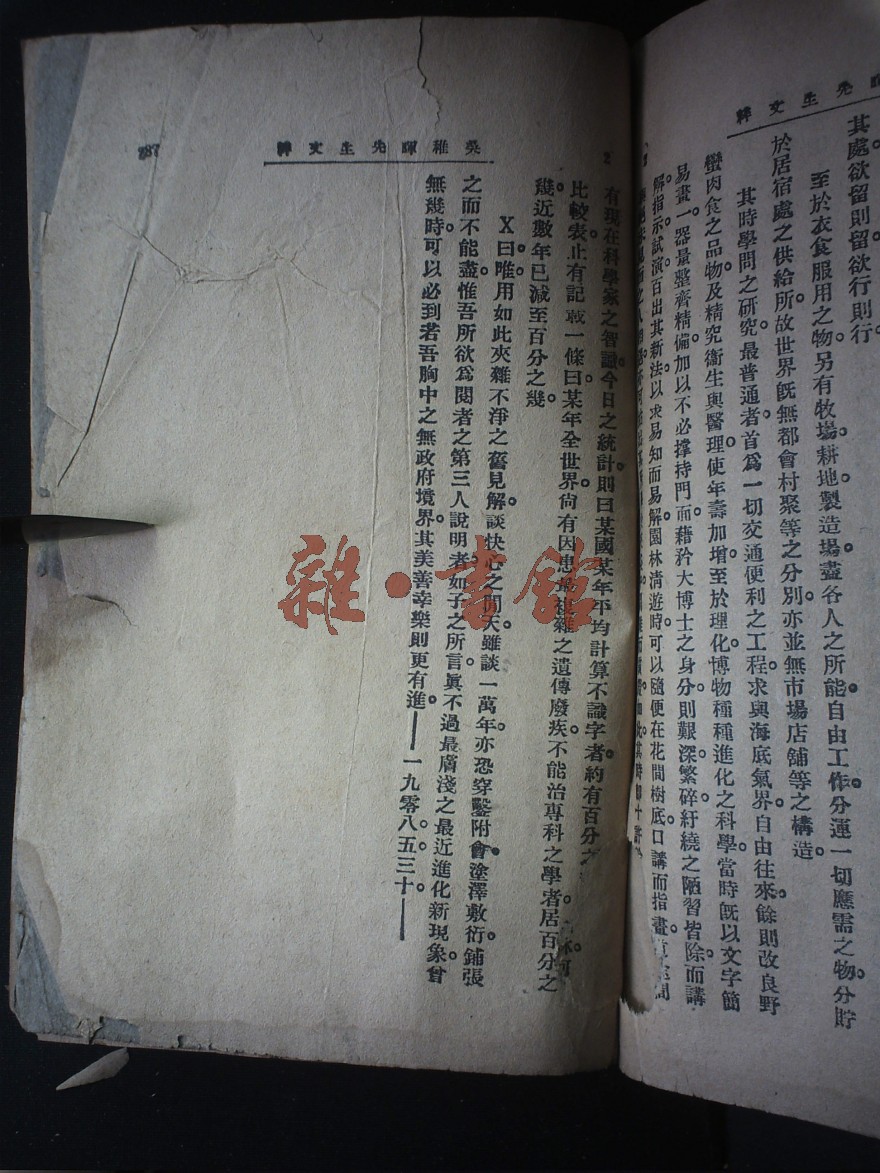 粹文生先暉
其處欲留則留欲行則行
至於衣食服用之物另有牧場耕地製造場盡各人之所能自由工作分運一切應需之物分貯
於居宿處之供給所故世界既無都會村聚等之分別亦並無市場店舖等之構造。
其時學問之研究最普通者首爲一切交通便利之工程求與海底氣界自由往來餘則改良野
蠻肉食之品物及精究衛生與醫理使年壽加增至於理化博物種種進化之科學當時既以文字簡
易畫一器具整齊精備加以不必撑持門面藉矜大博士之身分則艱深繁碎紆繞之陋習皆除而講
解指示試演百出其新法以求易知而易解園林清遊時可以隨便在花間樹底口講而指畫
粹文生先暉稚吳
787
有現在科學家之智識今日之統計則曰某國某年平均計算不識字者約有百分之
比較表止有記載一條曰某年全世界尙有因患最複雜之遺傳廢疾不能治專科之學者居百分之
幾近數年已減至百分之幾
X曰唯用如此夾雜不淨之舊見解談快心之閒天雖談一萬年亦恐穿鑿附會塗澤敷衍鋪張
之而不能盡惟吾所欲爲閱者之第三人說明者如子之所言眞不過最膚淺之最近進化新現象曾
無幾時可以必到若吾胸中之無政府境界其美善幸樂則更有進。——一九零八五三十。——
雜·書館